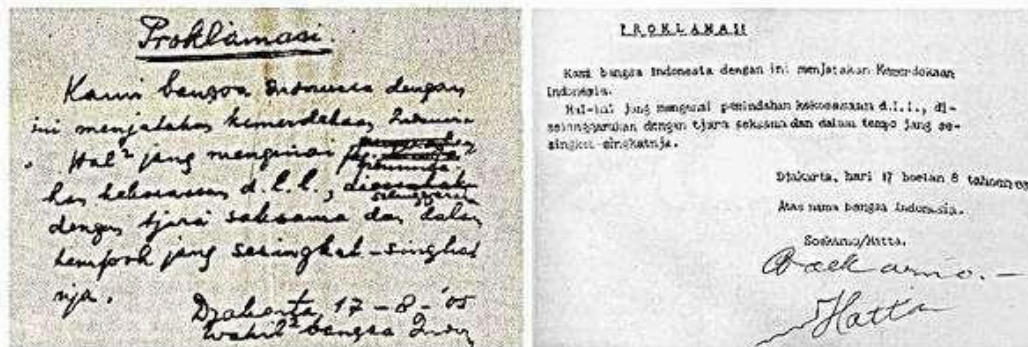 Proklamasi.
Kami bangsa Indonesia dengan
ini menjatakan kemerdekaan Indonesia
. Hal² jang mengenai
d.l.l.,
dengan tjara saksama dan dalam
tempoh jang sesingkat-singkat
nja.
Djakarta, 17-8-'05
Wakil² bangsa Indon
PROKLAMASI
Kami bangsa Indonesia dengan ini menjatakan Kemerdekaan
Indonesia.
Hal-hal jang mengenai pemindahan kekoeasaan d.l.l., di-
selenggarakan dengan tjara seksama dan dalam tempo jang se-
singkat-singkatnja.
Djakarta, hari 17 boelan 8 tahoen
Atas nama bangsa Indonesia.
Soekarno/Hatta.
Soekarno.-
Hatta